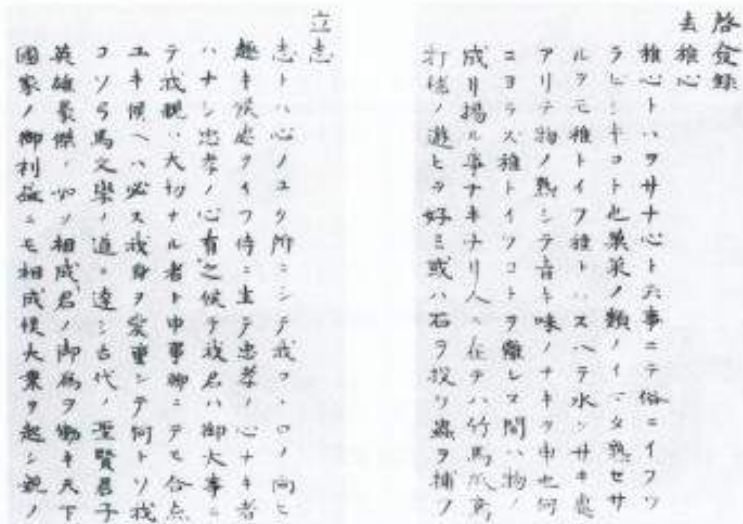 啓發録
去稚心
稚心トハヲサナ心ト云事ニテ俗ニイフワ
ラビシキコト也菓菜ノ類ノイマタ熟セサ
ルヲモ稚トイフ稚トハスヘテ水クサキ處
アリテ物ノ熟シテ旨ト味ノナキヲ申也何
ニヨラス稚トイフコトヲ離レヌ間ハ物ノ
成リ揚ル事ナキナリ人ニ在テハ竹馬爪高
打毬ノ遊ヒヲ好ミ或ハ石ヲ投ケ蟲ヲ捕ノ
立志
志トハ心ノユク所ニシテ我コヽロノ向ヒ
趣キ候處ヲイフ侍ニ生テ忠孝ノ心ナキ者
ハナシ忠孝ノ心有之候テ我君ハ御大事ニ
テ我親ハ大切ナル者ト申事聊ニテモ合点
ユキ候ヘハ必ス我身ヲ愛重シテ何トソ我
コソ弓馬文學ノ道ニ達シ古代ノ聖賢君子
英雄豪傑ノ如ク相成君ノ御為ヲ働キ天下
國家ノ御利益ニモ相成候大業ヲ起シ親ノ